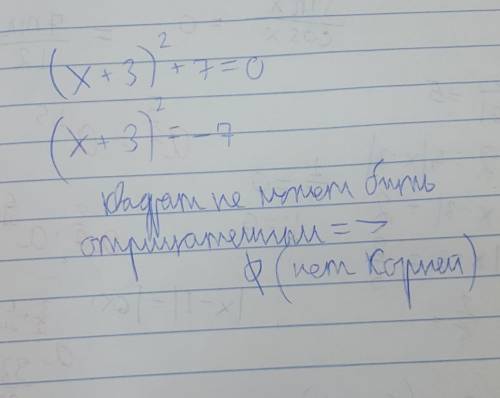 (x + 3)² + 7 = 0
(x + 3)² = -7
Квадрат не может быть
отрицательным =>
∅ (нет корней)